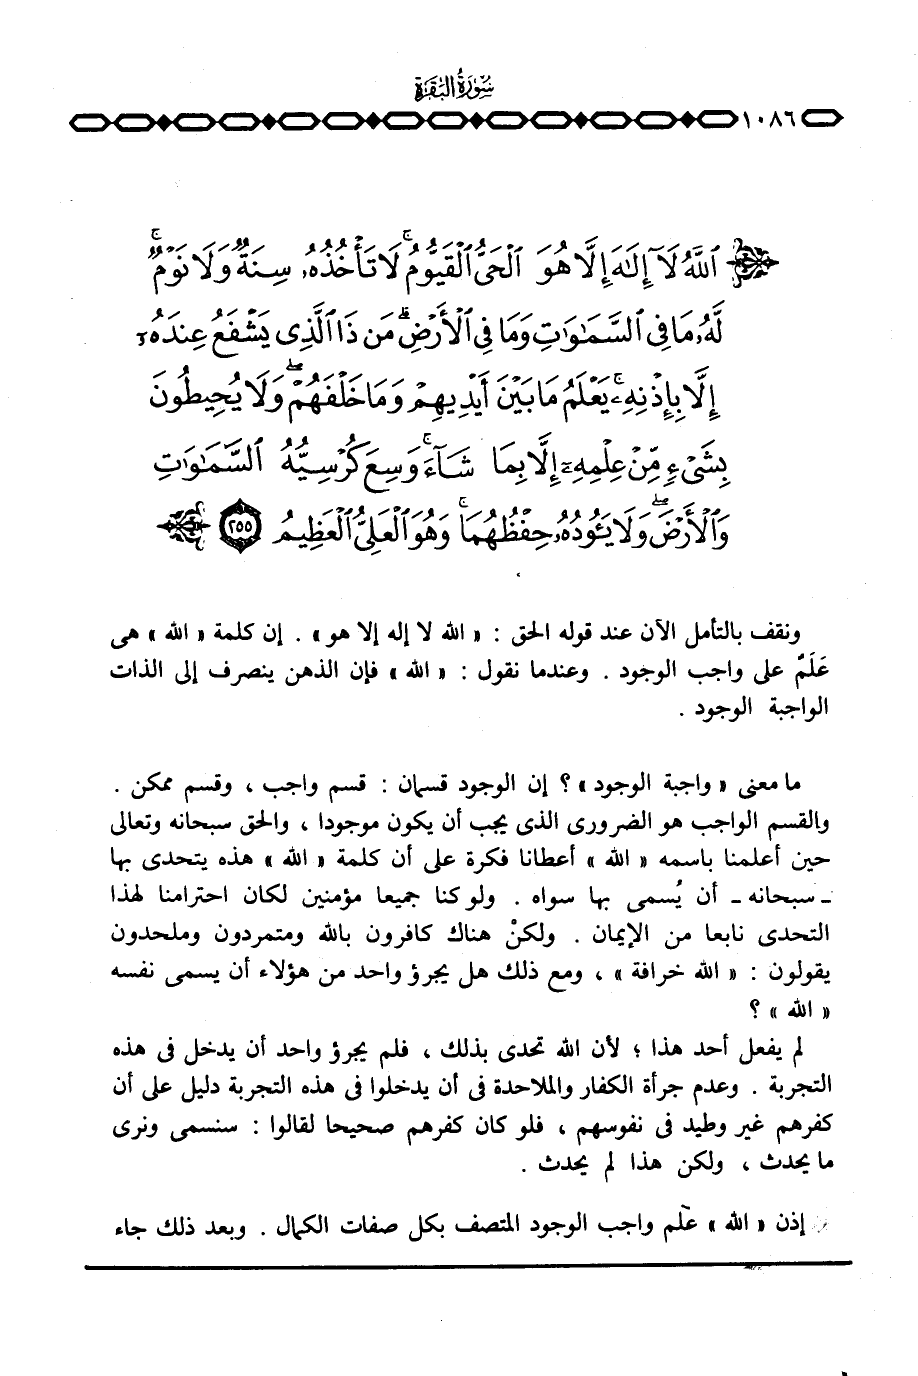 سُورَةُ البَقَرَة
١٠٨٦
ٱللَّهُ لَآ إِلَٰهَ إِلَّا هُوَ ٱلْحَىُّ ٱلْقَيُّومُ ۚ لَا تَأْخُذُهُۥ سِنَةٌ وَلَا نَوْمٌ ۚ
لَّهُۥ مَا فِى ٱلسَّمَٰوَٰتِ وَمَا فِى ٱلْأَرْضِ ۗ مَن ذَا ٱلَّذِى يَشْفَعُ عِندَهُۥٓ
إِلَّا بِإِذْنِهِۦ ۚ يَعْلَمُ مَا بَيْنَ أَيْدِيهِمْ وَمَا خَلْفَهُمْ ۖ وَلَا يُحِيطُونَ
بِشَىْءٍ مِّنْ عِلْمِهِۦٓ إِلَّا بِمَا شَآءَ ۚ وَسِعَ كُرْسِيُّهُ ٱلسَّمَٰوَٰتِ
وَٱلْأَرْضَ ۖ وَلَا يَـُٔودُهُۥ حِفْظُهُمَا ۚ وَهُوَ ٱلْعَلِىُّ ٱلْعَظِيمُ ٢٥٥
ونقف بالتأمل الآن عند قوله الحق : « الله لا إله إلا هو » . إن كلمة « الله » هى
عَلَمٌ على واجب الوجود . وعندما نقول : « الله » فإن الذهن ينصرف إلى الذات
الواجبة الوجود .
ما معنى « واجبة الوجود » ؟ إن الوجود قسمان : قسم واجب ، وقسم ممكن .
والقسم الواجب هو الضرورى الذى يجب أن يكون موجودا ، والحق سبحانه وتعالى
حين أعلمنا باسمه « الله » أعطانا فكرة على أن كلمة « الله » هذه يتحدى بها
ـ سبحانه ـ أن يُسمى بها سواه . ولو كنا جميعا مؤمنين لكان احترامنا لهذا
التحدى نابعا من الإيمان . ولكنْ هناك كافرون بالله ومتمردون وملحدون
يقولون : « الله خرافة » ، ومع ذلك هل يجرؤ واحد من هؤلاء أن يسمى نفسه
« الله » ؟
لم يفعل أحد هذا ؛ لأن الله تحدى بذلك ، فلم يجرؤ واحد أن يدخل فى هذه
التجربة . وعدم جرأة الكفار والملاحدة فى أن يدخلوا فى هذه التجربة دليل على أن
كفرهم غير وطيد فى نفوسهم ، فلو كان كفرهم صحيحا لقالوا : سنسمى ونرى
ما يحدث ، ولكن هذا لم يحدث .
إذن « الله » علَم واجب الوجود المتصف بكل صفات الكمال . وبعد ذلك جاء